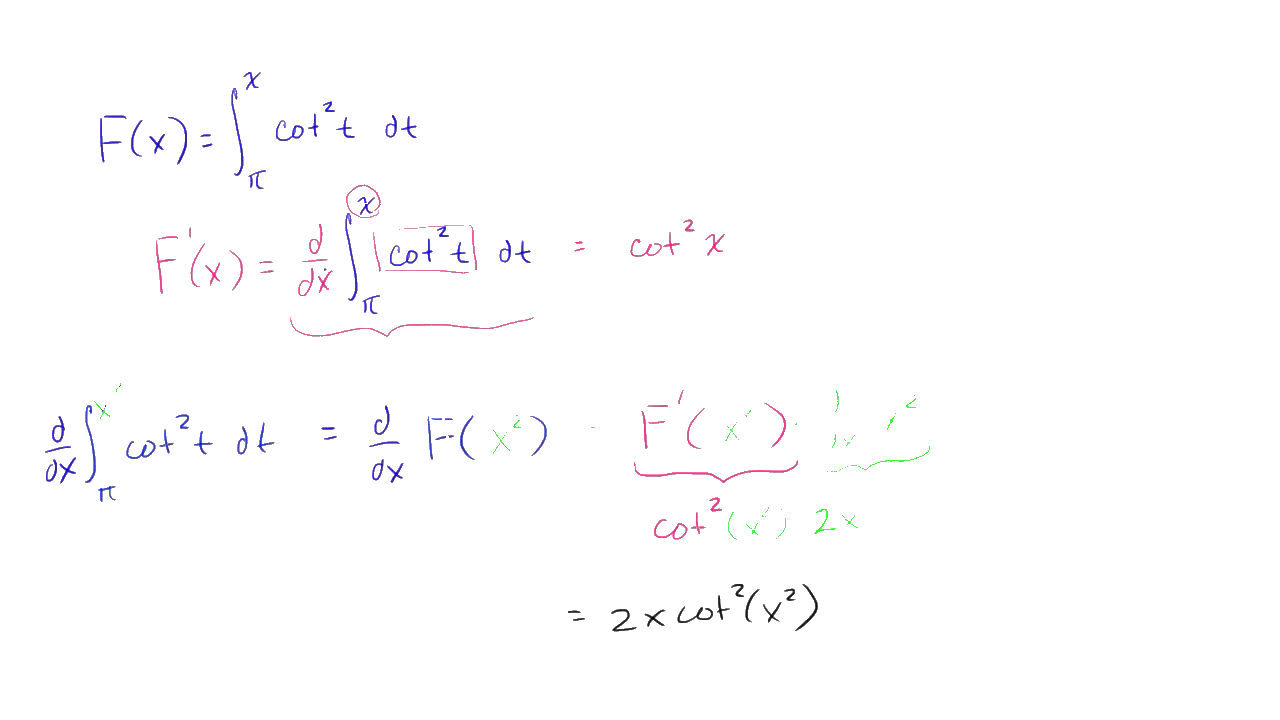 F(x) = ∫_π^x cot² t dt
F'(x) = d/dx ∫_π^x cot² t dt = cot² x
d/dx ∫_π^x² cot² t dt = d/dx F(x²) F'(x²) · x²
cot² (x²) 2x
= 2x cot²(x²)